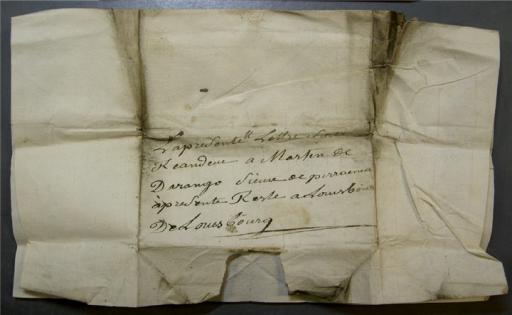 Lapresente Lettre soit
Reandeue a Martin de
Darango Sieure de
apresente Reste a Louisbourg
De Louisbourg